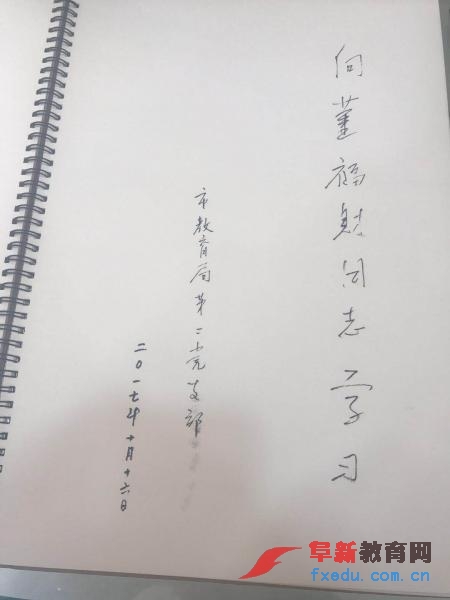 向董福财同志学习
市教育局第二党支部
二〇一七年十月十六日
阜新教育网
fxedu.com.cn